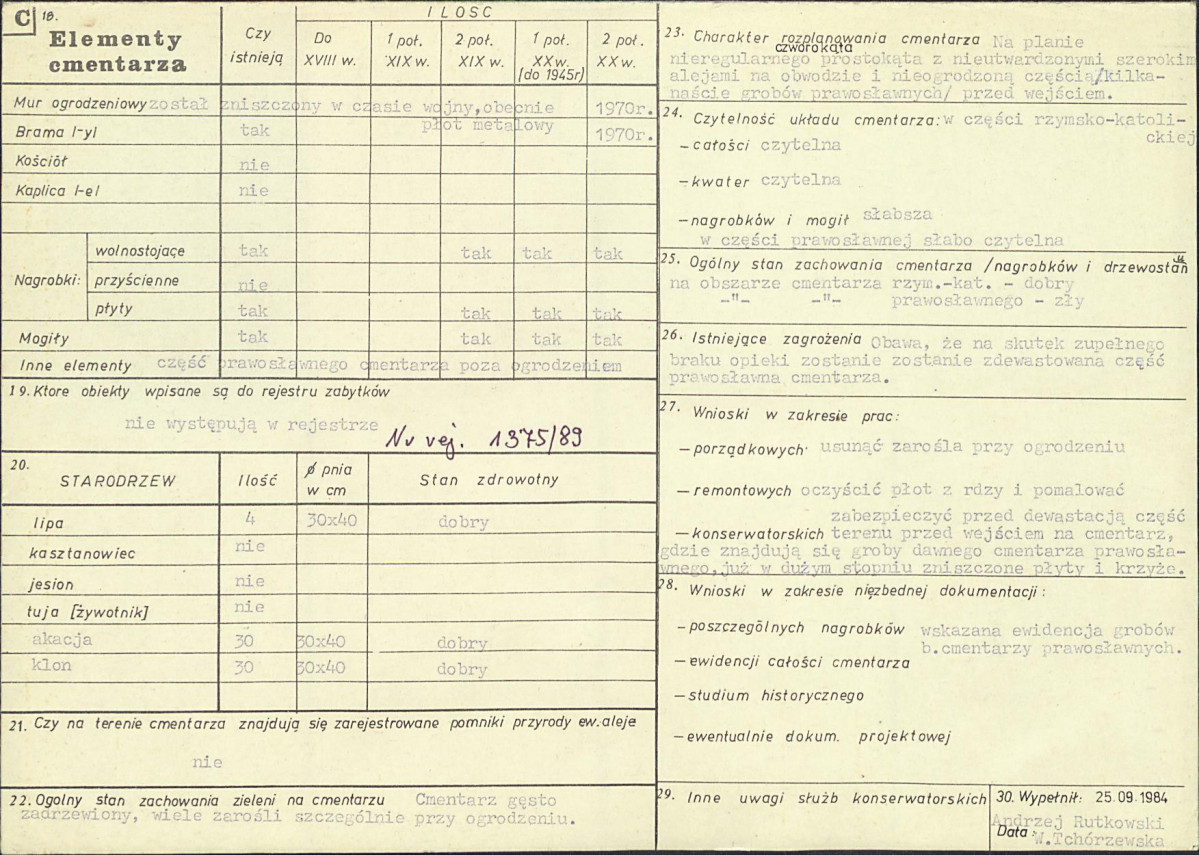 C 18.
Elementy cmentarza
Czy istnieją
ILOSC
Do XVIII w.
1 poł. XIX w.
2 poł. XIX w.
1 poł. XX w. [do 1945r]
2 poł. XX w.
Mur ogrodzeniowy został zniszczony w czasie wojny, obecnie 1970r.
płot metalowy
Brama l-yl tak 1970r.
Kościół nie
Kaplica l-el nie
Nagrobki:
wolnostojące tak tak tak tak
przyścienne nie
płyty tak tak tak tak
Mogiły tak tak tak tak
Inne elementy część prawosławnego cmentarza poza ogrodzeniem
19. Ktore obiekty wpisane są do rejestru zabytków
nie występują w rejestrze
Nr rej. 1375/89
20. STARODRZEW Ilość ø pnia w cm Stan zdrowotny
lipa 4 30x40 dobry
kasztanowiec nie
jesion nie
tuja [żywotnik] nie
akacja 30 30x40 dobry
klon 30 30x40 dobry
21. Czy na terenie cmentarza znajdują się zarejestrowane pomniki przyrody ew. aleje
nie
22. Ogolny stan zachowania zieleni na cmentarzu Cmentarz gęsto
zadrzewiony, wiele zarośli szczególnie przy ogrodzeniu.
23. Charakter rozplanowania cmentarza Na planie
czworokąta
nieregularnego prostokąta z nieutwardzonymi szerokim
alejami na obwodzie i nieogrodzoną częścią/kilka-
naście grobów prawosławnych/ przed wejściem.
24. Czytelność układu cmentarza: w części rzymsko-katoli-
ckiej
- całości czytelna
- kwater czytelna
- nagrobków i mogił słabsza
w części prawosławnej słabo czytelna
25. Ogólny stan zachowania cmentarza /nagrobków i drzewostan
na obszarze cmentarza rzym.-kat. - dobry
-"- -"- prawosławnego - zły
26. Istniejące zagrożenia Obawa, że na skutek zupełnego
braku opieki zostanie zostanie zdewastowana część
prawosławna cmentarza.
27. Wnioski w zakresie prac:
- porządkowych usunąć zarośla przy ogrodzeniu
- remontowych oczyścić płot z rdzy i pomalować
zabezpieczyć przed dewastacją część
- konserwatorskich terenu przed wejściem na cmentarz,
gdzie znajdują się groby dawnego cmentarza prawosła-
wnego, już w dużym stopniu zniszczone płyty i krzyże.
28. Wnioski w zakresie nięzbednej dokumentacji:
- poszczególnych nagrobków wskazana ewidencja grobów
b.cmentarzy prawosławnych.
- ewidencji całości cmentarza
- studium historycznego
- ewentualnie dokum. projektowej
29. Inne uwagi służb konserwatorskich
30. Wypełnił: 25.09.1984
Andrzej Rutkowski
Data: W.Tchórzewska